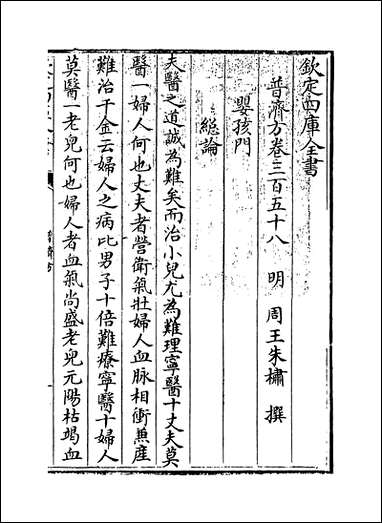 欽定四庫全書
普濟方卷三百五十八　明　周王朱橚　撰
嬰孩門
總論
夫醫之道誠為難矣而治小兒尤為難理寧醫十丈夫莫
醫一婦人何也丈夫者營衛氣壯婦人血脉相衝兼産
難治千金云婦人之病比男子十倍難療寧醫十婦人
莫醫一老兒何也婦人者血氣尚盛老兒元陽枯竭血
普濟方